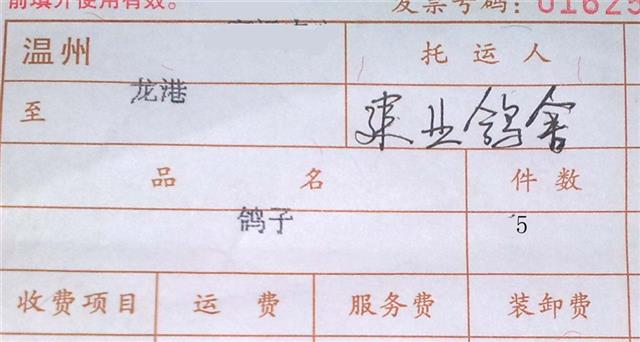 前填开使用有效。 发票号码：01625
温州 托运人
龙港
至 建业鸽舍
品名 件数
鸽子 5
收费项目 运费 服务费 装卸费